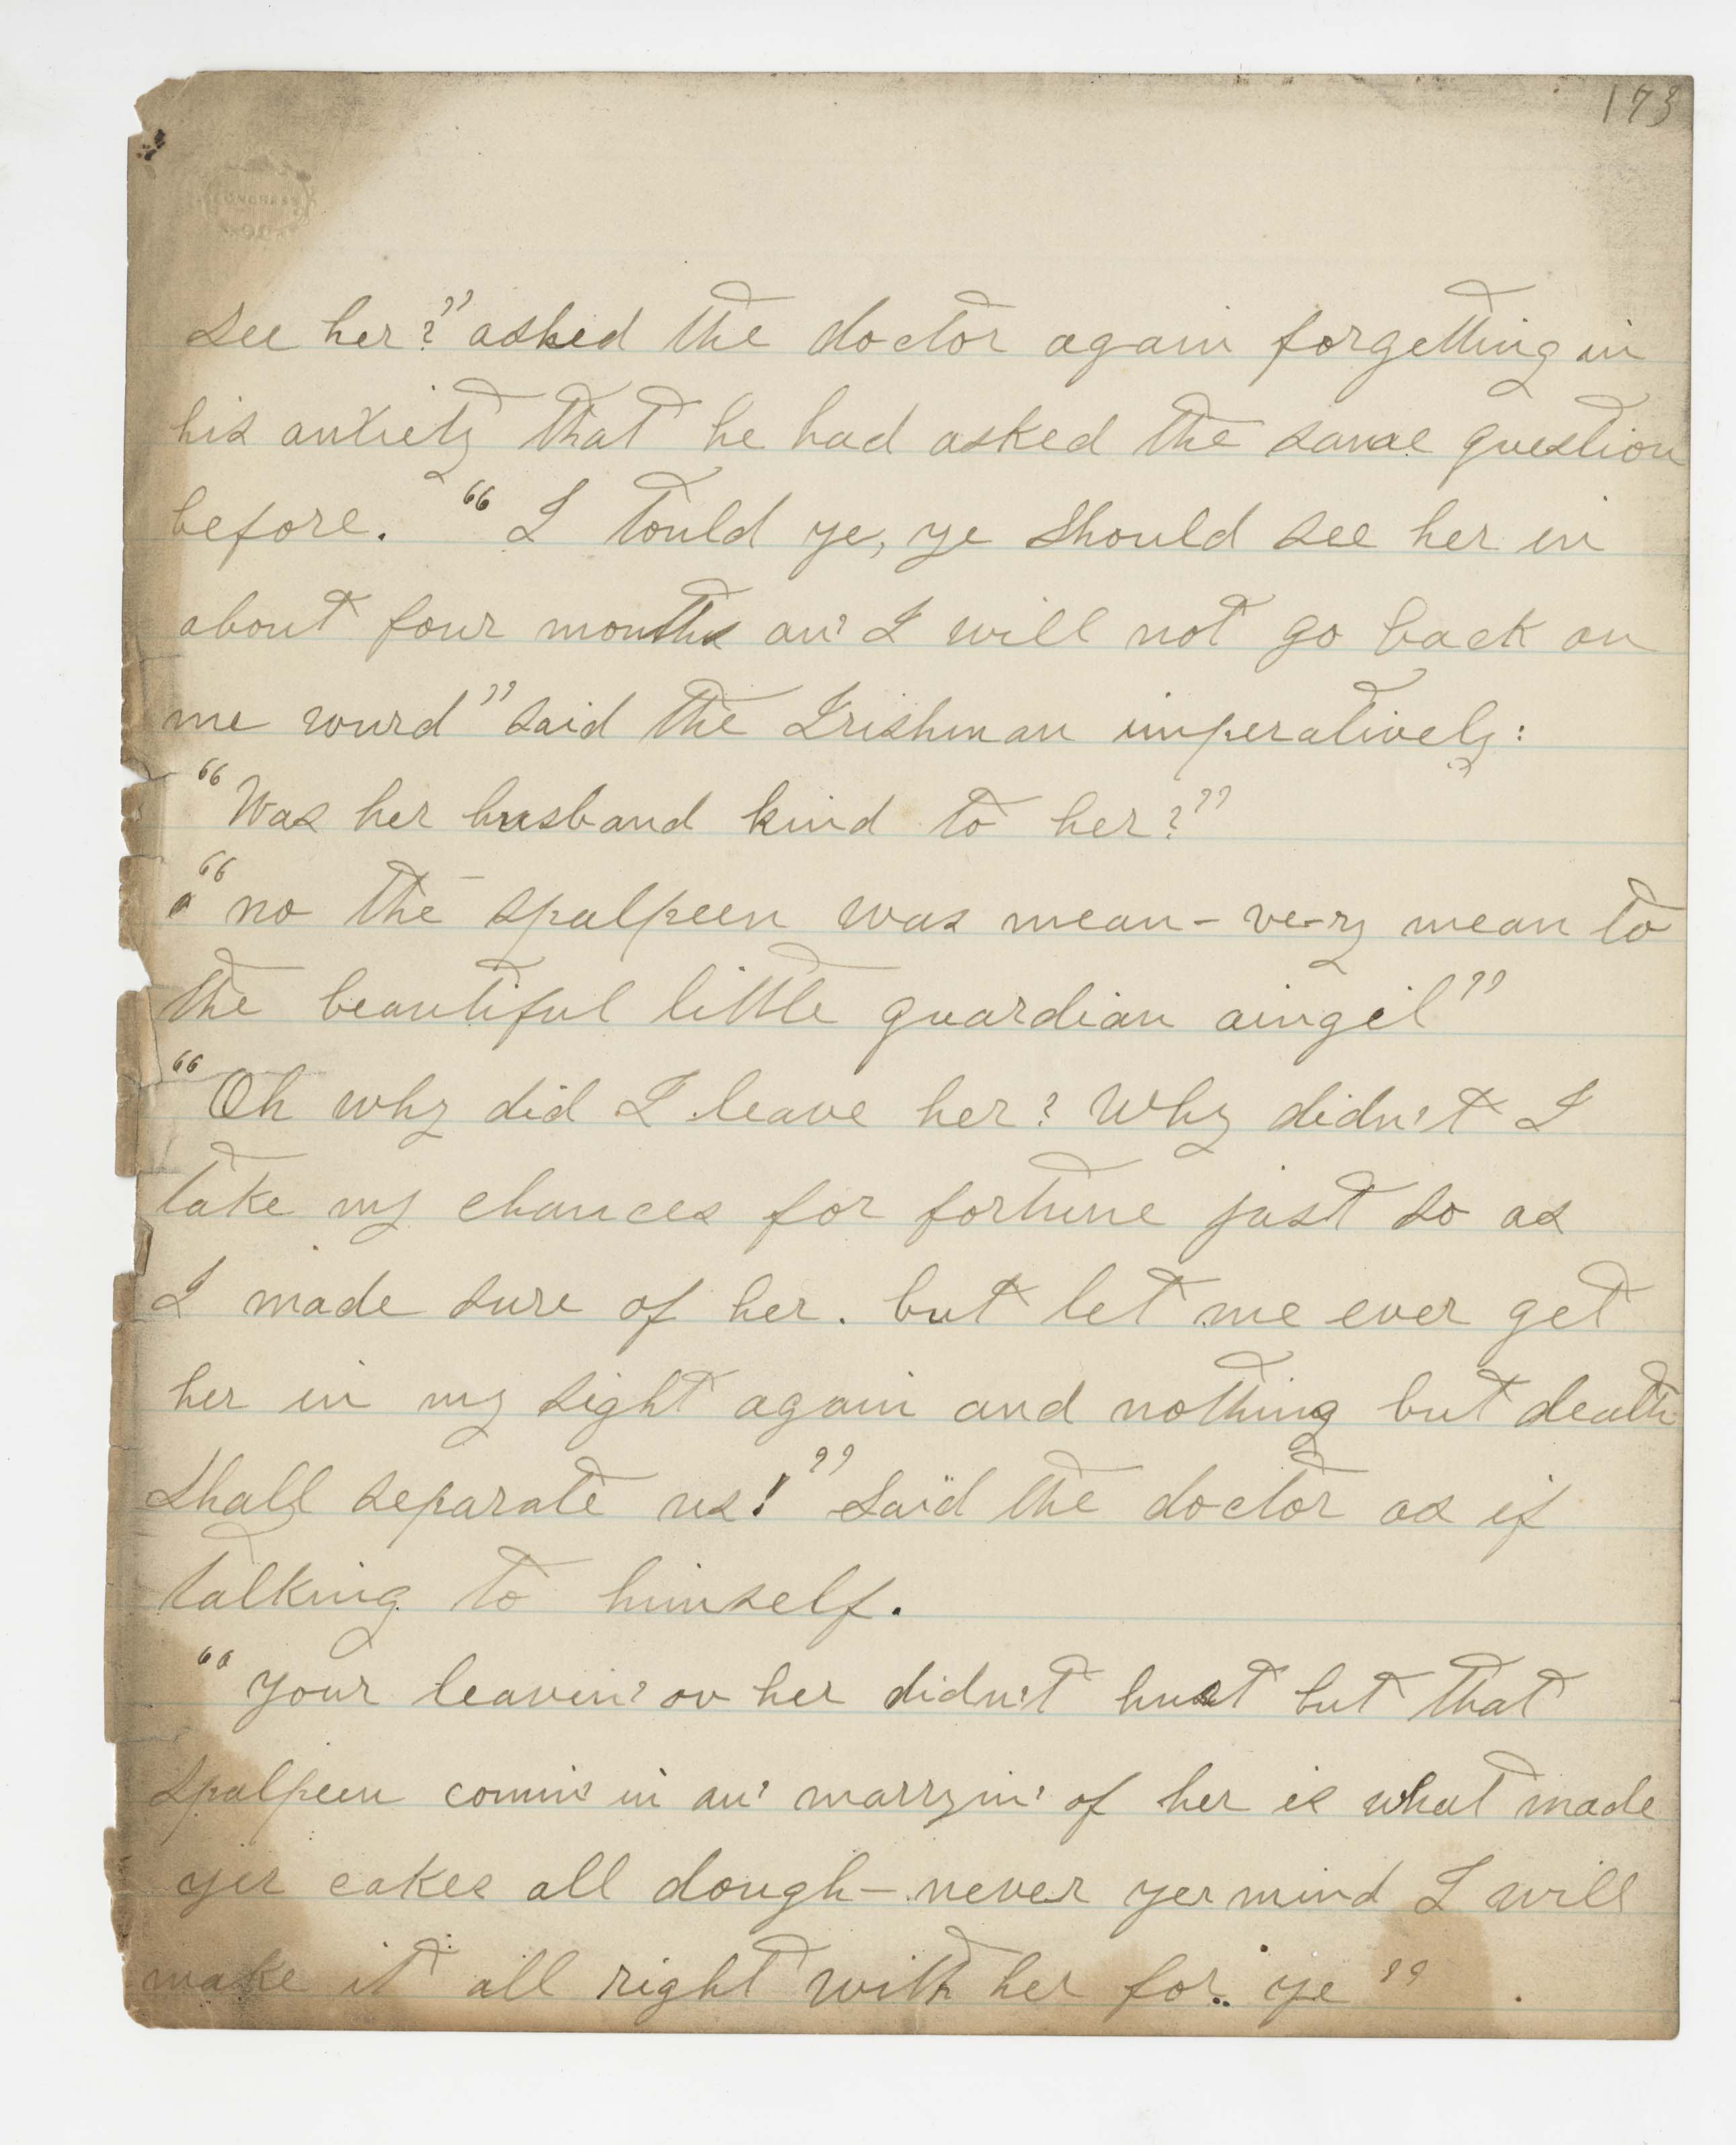 173
see her?" asked the doctor again forgetting in
his anxiety that he had asked the same question
before. "I tould ye, ye should see her in
about four months an' I will not go back on
me wurd" said the Irishman imperatively:
"Was her husband kind to her?"
"no the spalpeen was mean - very mean to
the beautiful little guardian aingel"
"Oh why did I leave her? Why didn't I
take my chances for fortune just so as
I made sure of her. but let me ever get
her in my sight again and nothing but death
shall separate us!" said the doctor as if
talking to himself.
"Your leavin' ov her didn't hurt but that
spalpeen comin' in an' marryin' of her is what made
yer cakes all dough - never yer mind I will
make it all right with her for ye"